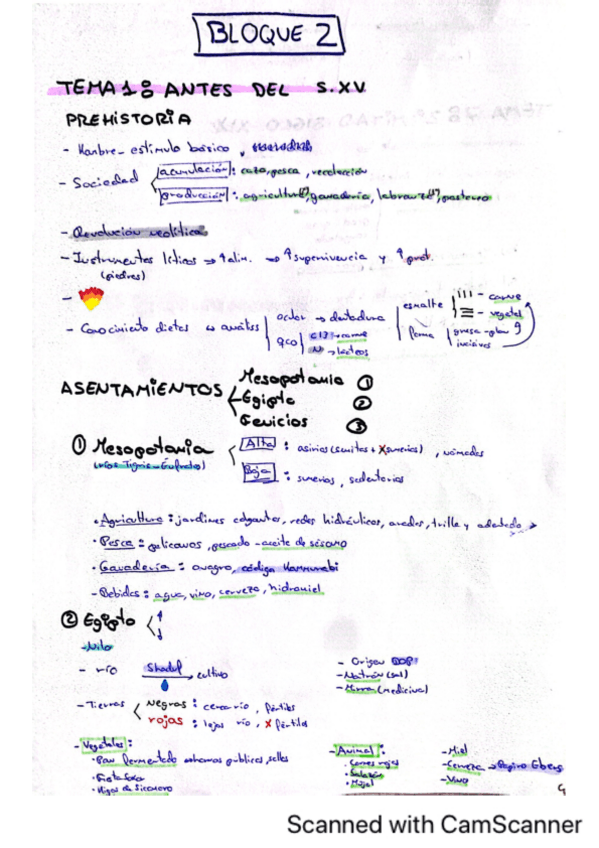 BLOQUE 2
TEMA 1: ANTES DEL S.XV
PREHISTORIA
- Hambre - estímulo básico
- Sociedad
acumulación: caza, pesca, recolección
producción: agricultura, ganadería, pastoreo
- Revolución neolítica
- Instrumentos líticos → ↑ alim. → ↑ supervivencia y ↑ prot.
(piedras)
- Conocimiento dietas
→ dentadura
esmalte
||| - carne
≡ - vegetal
forma
incisivos
C13 - carne
N → lácteos
ASENTAMIENTOS
Mesopotamia ①
Egipto ②
Fenicios ③
① Mesopotamia
(ríos Tigris - Éufrates)
Alta: asirios (semitas + sumerios), nómadas
Baja: sumerios, sedentarios
• Agricultura: jardines colgantes, redes hidráulicos, arados, trillo y
• Pesca: pelicanos, pescado - aceite de sésamo
• Ganadería: onagro, código Hammurabi
- Bebidas: agua, vino, cerveza, hidromiel
② Egipto
- Nilo
- río Shaduf → cultivo
- Origen
- Natrón (sal)
- Mirra (medicinal)
- Tierras
negras: cerca río, fértiles
rojas: lejos río, X fértiles
- Vegetales:
• Pan fermentado → hornos públicos, sellos
• Higos de sicomoro
- Animal:
• Carnes rojas
• Salazón
• Mújol
- Miel
- Cerveza → Papiro Ebers
- Vino
Scanned with CamScanner